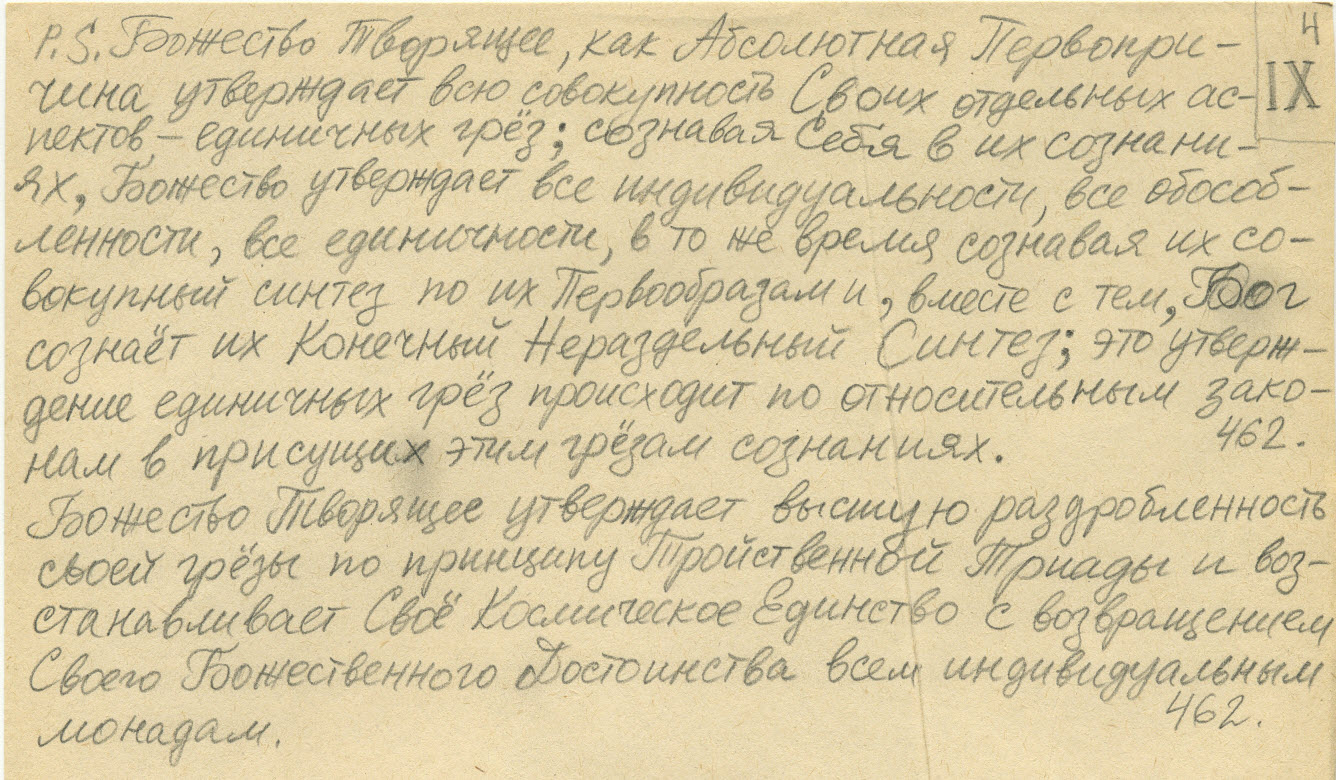 4
P.S. Божество Творящее, как Абсолютная Первопри-
IX
чина утверждает всю совокупность Своих отдельных ас-
пектов – единичных грёз; сознавая Себя в их сознани-
ях, Божество утверждает все индивидуальности, все обособ-
ленности, все единичности, в то же время сознавая их со-
вокупный синтез по их Первообразам и, вместе с тем, Бог
сознаёт их Конечный Нераздельный Синтез; это утверж-
дение единичных грёз происходит по относительным зако-
нам в присущих этим грёзам сознаниях.
462.
Божество Творящее утверждает высшую раздробленность
своей грёзы по принципу Тройственной Триады и воз-
станавливает Своё Космическое Единство с возвращением
Своего Божественного Достоинства всем индивидуальным
монадам.
462.